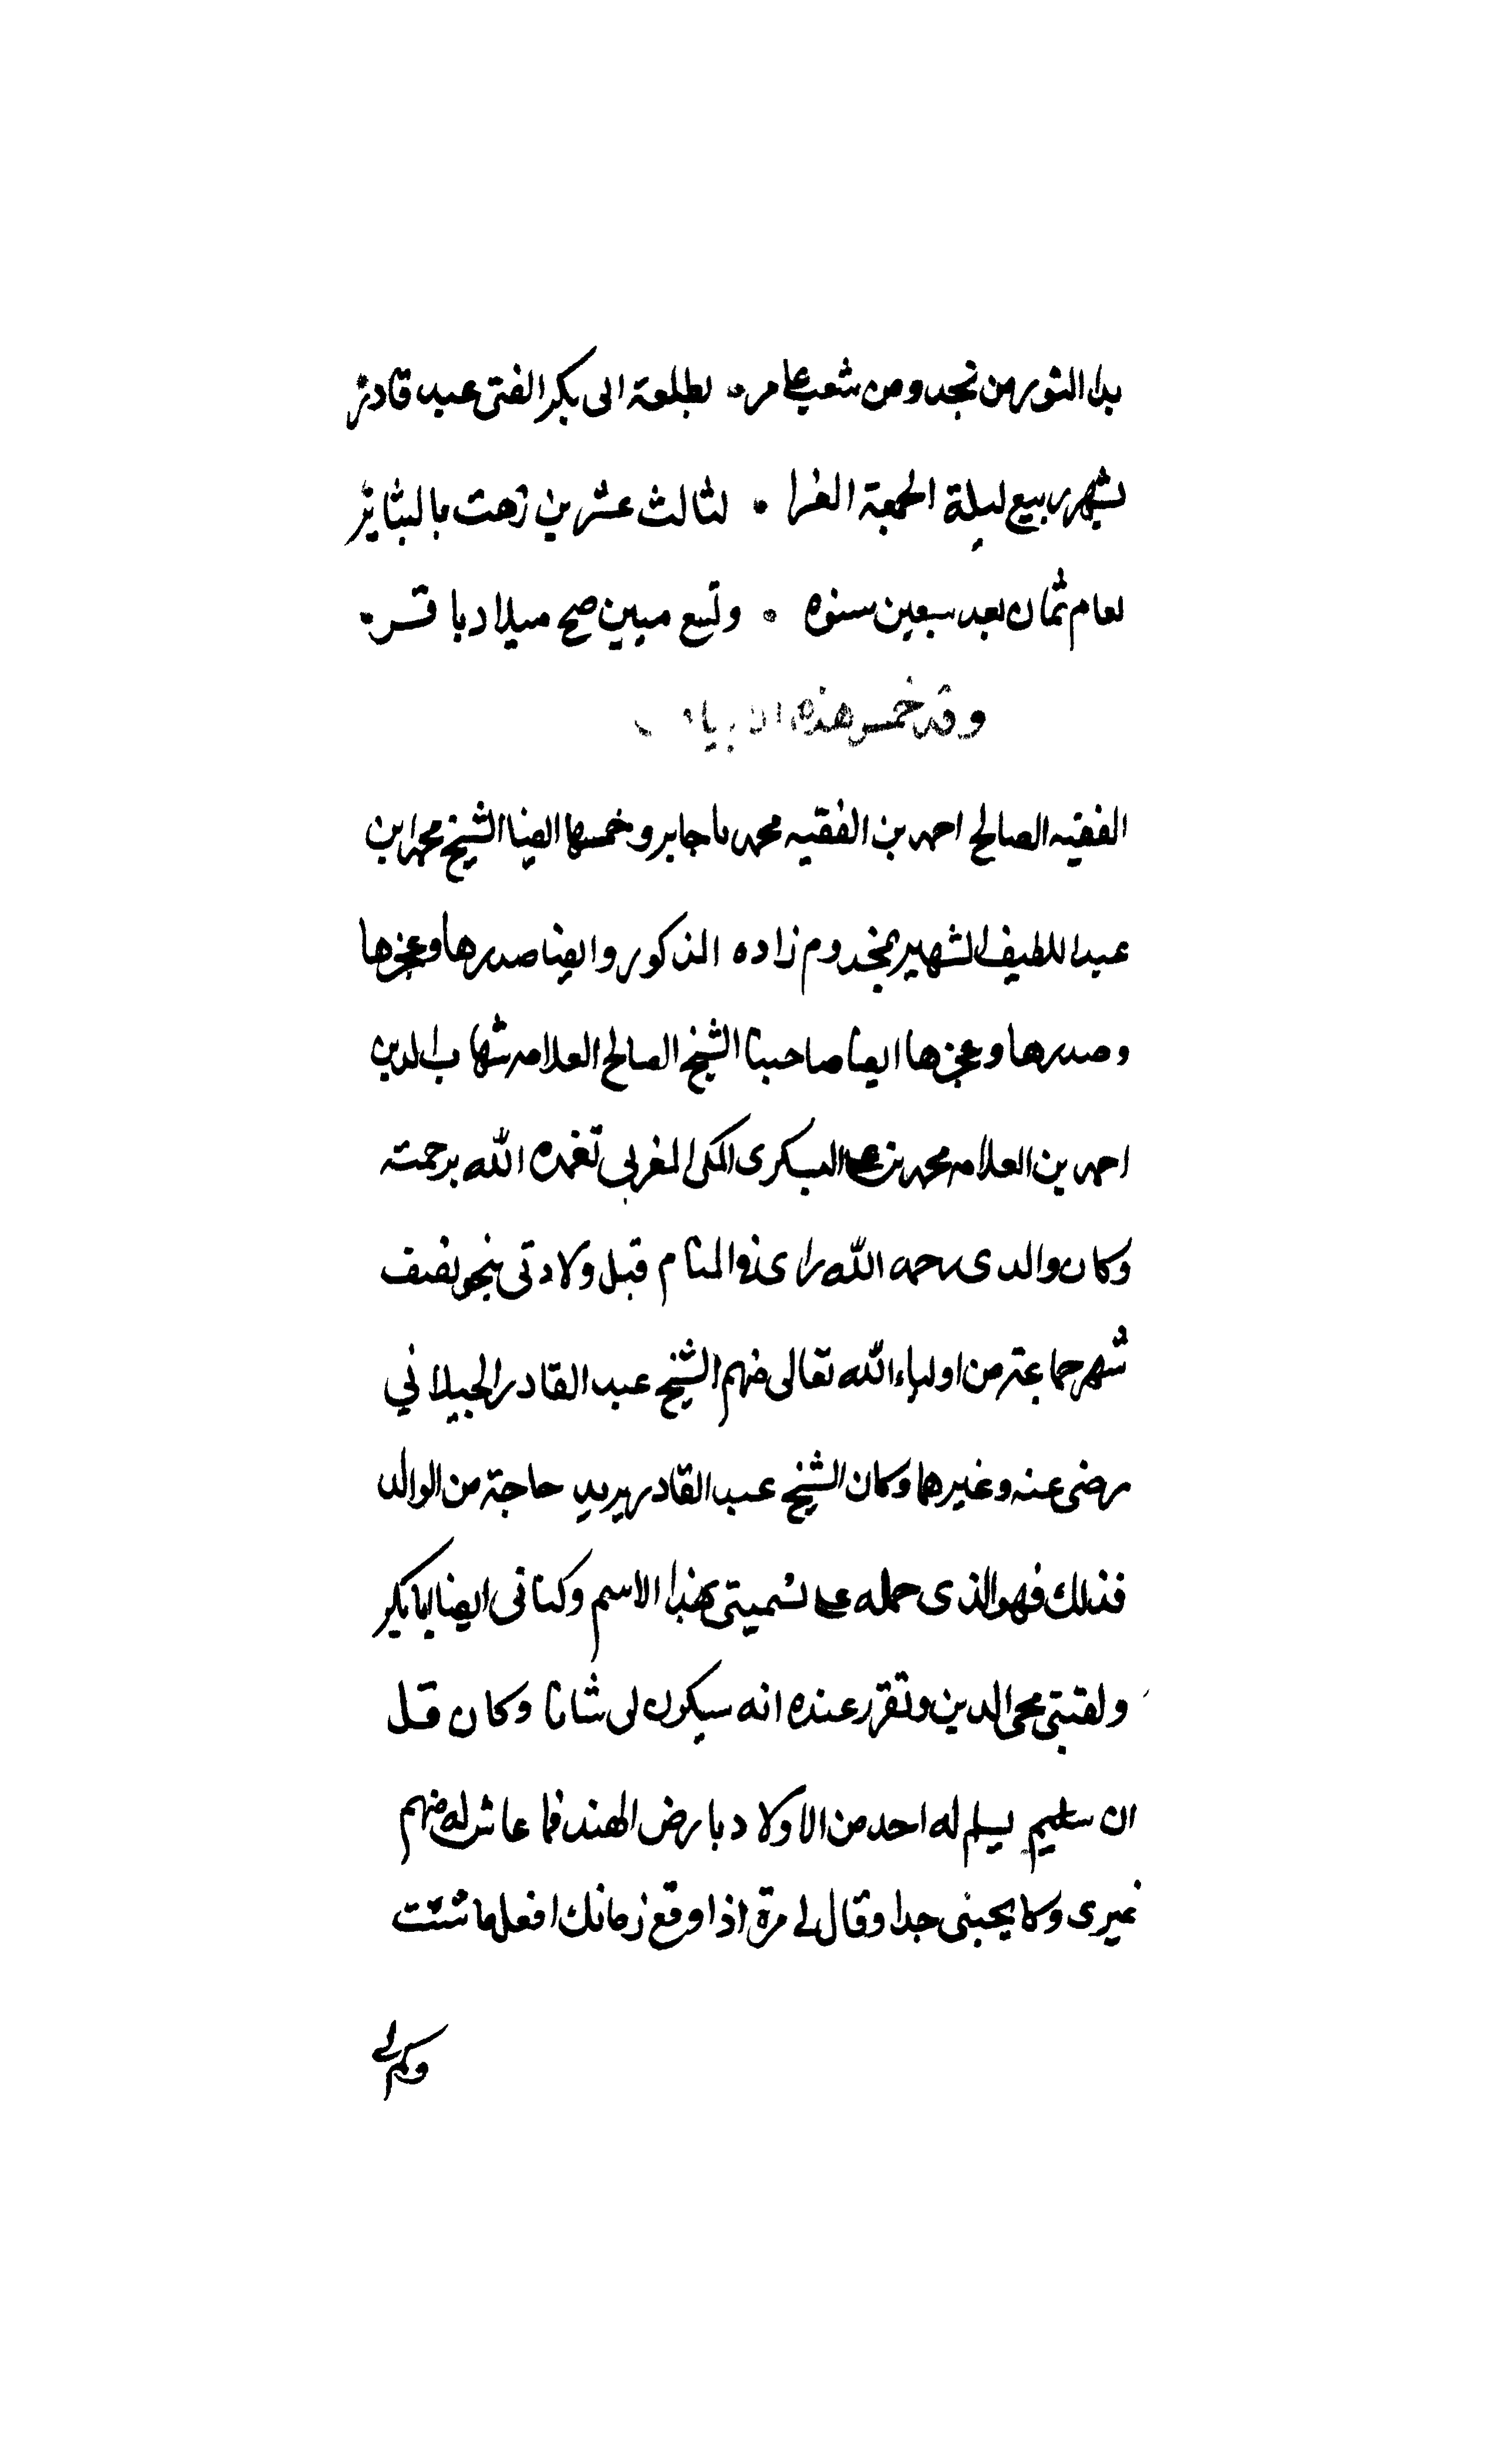 بدا النور من نجد ومن شعب عامر • لطلعة ابى بكر الفتى عبد قادر
بشهر ربيع ليلة الجمعة الغرا • لثالث عشرين زهت بالبشاير
لعام ثمان بعد سبعين سنوه • وتسع ميين صح ميلاد باقر •
وقد خمس هذه الابيات
الفقيه الصالح احمد بن الفقيه محمد باجابر وخمسها ايضا الشيخ محمد ابن
عبد اللطيف الشهير بمخدوم زاده المذكور وايضا صدرها وعجزها
وصدرها وعجزها ايضا صاحبنا الشيخ الصالح العلامه شهاب الدين
احمد بن العلامه محمد بن على البسكرى المكى المغربي تغمده الله برحمته
وكان والدى رحمه الله راى في المنام قبل ولادتى بنحو نصف
شهر جماعة من اولياء الله تعالى منهم الشيخ عبد القادر الجيلاني
رضى عنه وغيرهما وكان الشيخ عبد القادر يريد حاجة من الوالد
فذلك فهو الذى حمله على تسميتى بهذا الاسم وكنانى ايضا ابا بكر
ولقبتى محى الدين وتقرر عنده انه سيكون لى شانا وكان قل
ان سليم يسلم له احد من الاولاد بارض الهند فما عاش له منهم
غيرى وكا يحبنى جدا وقال لي مرة اذا وقع زمانك افعل ما شئت
وكم لي